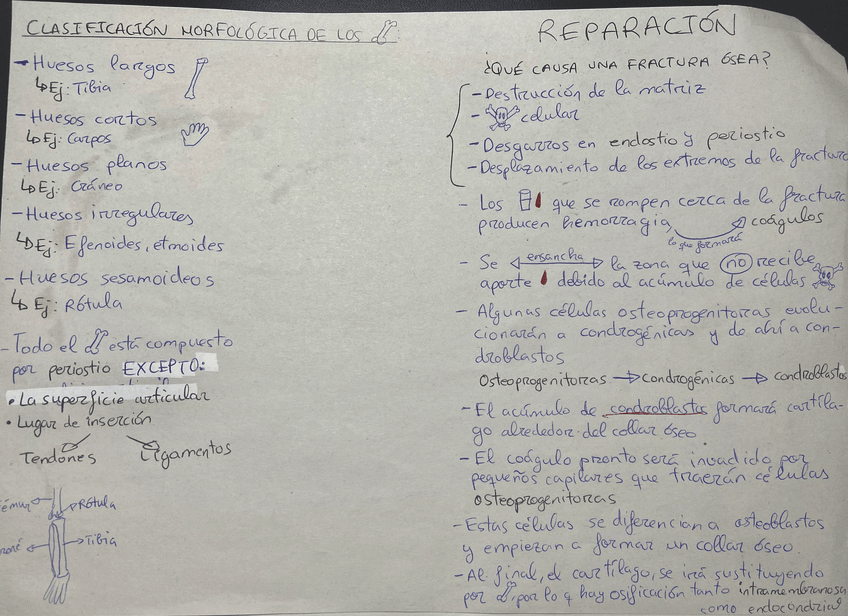 CLASIFICACIÓN MORFOLÓGICA DE LOS
- Huesos largos
↳ Ej: Tibia
- Huesos cortos
↳ Ej: Carpos
- Huesos planos
↳ Ej: Cráneo
- Huesos irregulares
↳ Ej: Efenoides, etmoides
- Huesos sesamoideos
↳ Ej: Rótula
- Todo el está compuesto
por periostio EXCEPTO:
• La superficie articular
• Lugar de inserción
Tendones Ligamentos
Rótula
Tibia
REPARACIÓN
¿QUÉ CAUSA UNA FRACTURA ÓSEA?
- Destrucción de la matriz
- celular
- Desgarros en endostio y periostio
- Desplazamiento de los extremos de la fractura
- Los que se rompen cerca de la fractura
producen hemorragia, lo que formará coágulos
- Se ensancha la zona que no recibe
aporte debido al acúmulo de células
- Algunas células osteoprogenitoras evolu-
cionarán a condrogénicas y de ahí a con-
droblastos
Osteoprogenitoras → condrogénicas → condroblastos
- El acúmulo de condroblastos formará cartíla-
go alrededor del collar óseo.
- El coágulo pronto será invadido por
pequeños capilares que traerán células
osteoprogenitoras
- Estas células se diferencian a osteoblastos
y empiezan a formar un collar óseo.
- Al final, el cartílago, se irá sustituyendo
por , por lo q hay osificación tanto intramembranosa
como endocondrial